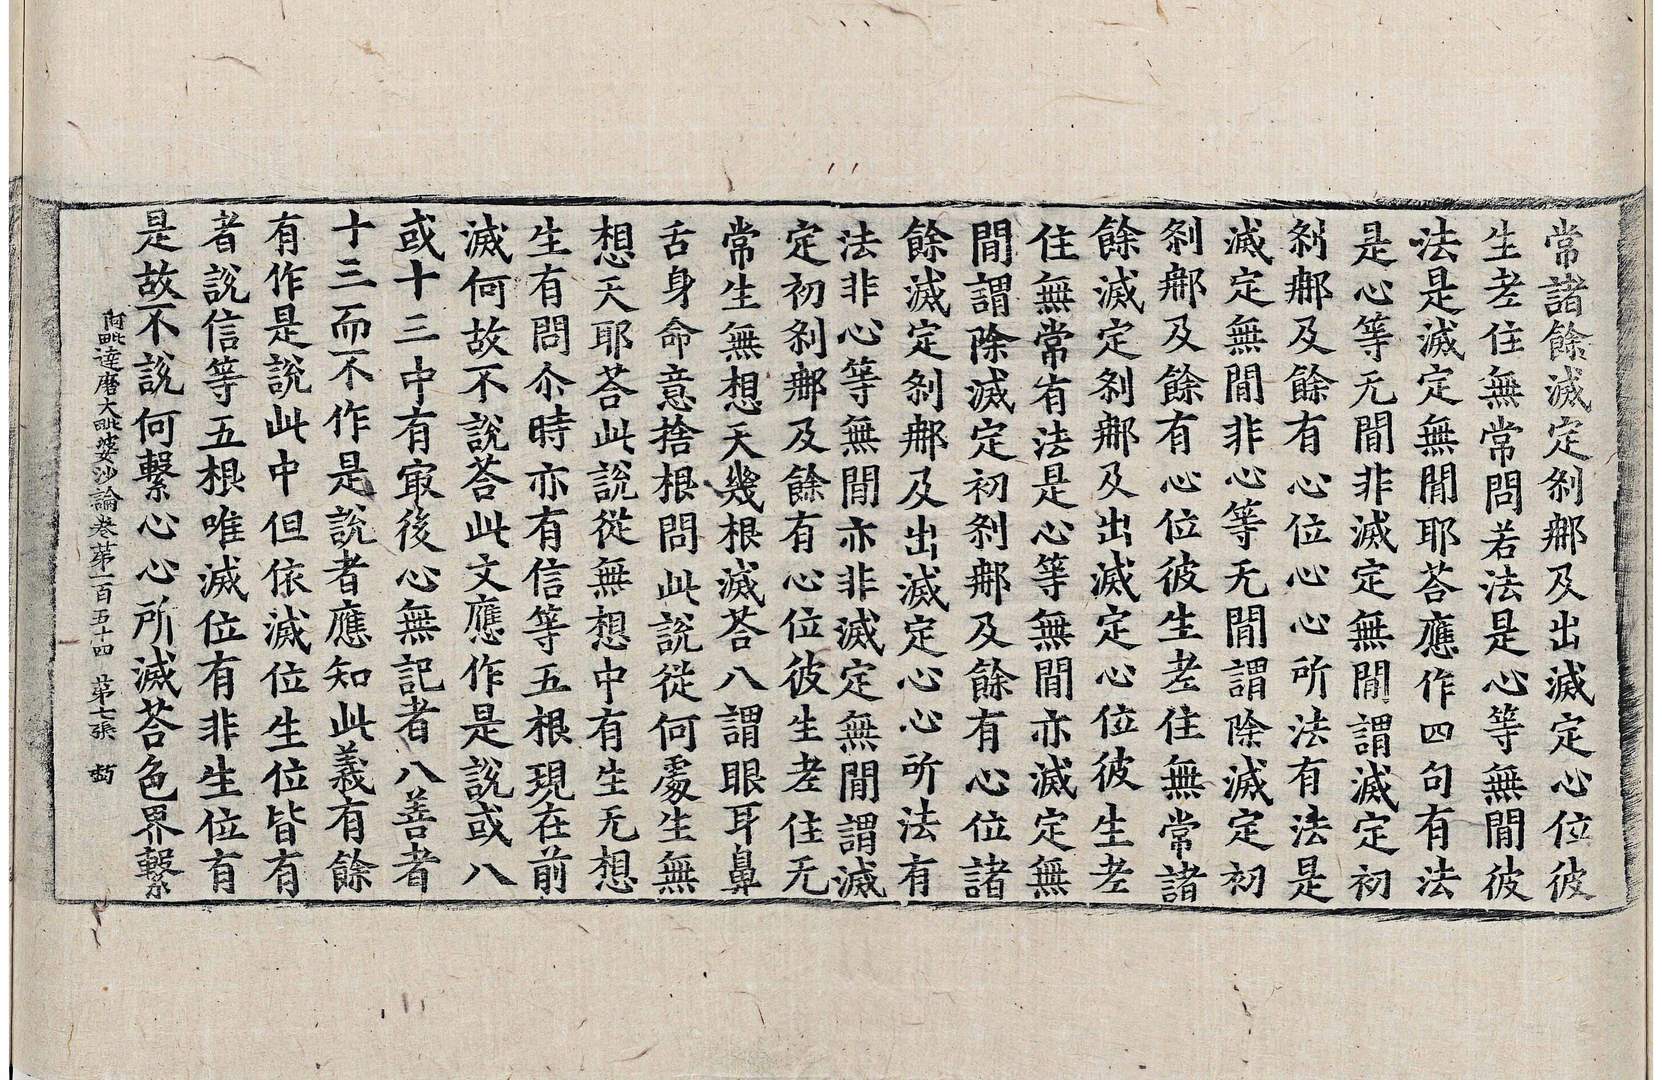 常諸餘滅定刹𨙻及出滅定心位彼
生老住無常問若法是心等無間彼
法是滅定無間耶荅應作四句有法
是心等无間非滅定無間謂滅定初
刹𨙻及餘有心位心心所法有法是
滅定無間非心等无間謂除滅定初
刹𨙻及餘有心位彼生老住無常諸
餘滅定刹𨙻及出滅定心位彼生老
住無常有法是心等無間亦滅定無
間謂除滅定初刹𨙻及餘有心位諸
餘滅定刹𨙻及出滅定心心所法有
法非心等無間亦非滅定無間謂滅
定初刹𨙻及餘有心位彼生老住无
常生無想天幾根滅荅八謂眼耳鼻
舌身命意捨根問此說從何處生無
想天耶荅此說從無想中有生无想
生有問尒時亦有信等五根現在前
滅何故不說荅此文應作是說或八
或十三中有㝡後心無記者八善者
十三而不作是說者應知此義有餘
有作是說此中但依滅位生位皆有
者說信等五根唯滅位有非生位有
是故不說何繫心心所滅荅色界繫
阿毗達磨大毗婆沙論卷第一百五十四 第七張